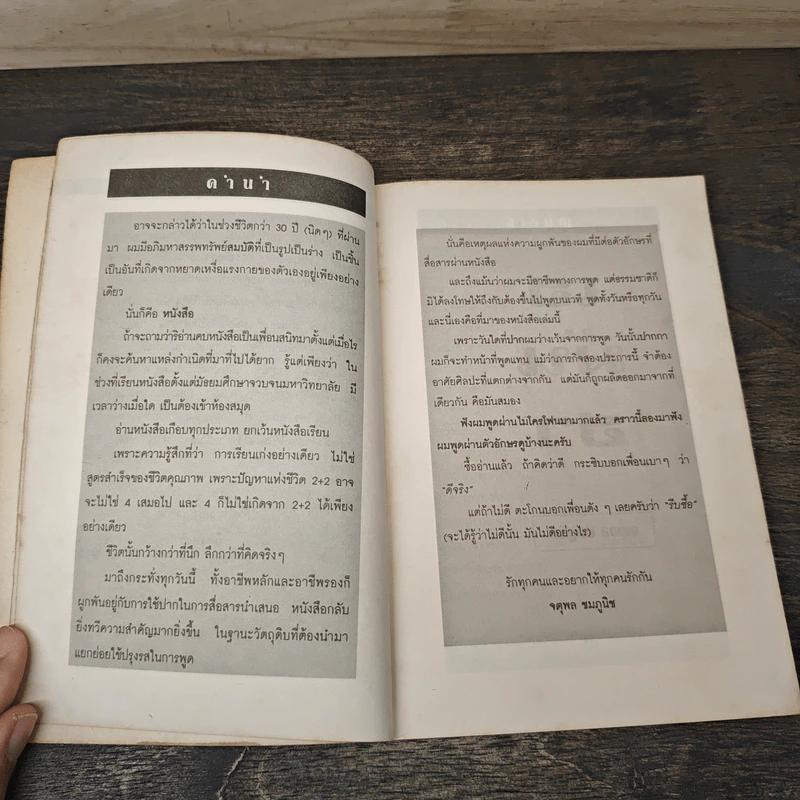 คำนำ
อาจจะกล่าวได้ว่าในช่วงชีวิตกว่า 30 ปี (นิดๆ) ที่ผ่าน
มา ผมมีอภิมหาสรรพทรัพย์สมบัติที่เป็นรูปเป็นร่าง เป็นชิ้น
เป็นอันที่เกิดจากหยาดเหงื่อแรงกายของตัวเองอยู่เพียงอย่าง
เดียว
นั่นก็คือ หนังสือ
ถ้าจะถามว่าริอ่านคบหนังสือเป็นเพื่อนสนิทมาตั้งแต่เมื่อไร
ก็คงจะค้นหาแหล่งกำเนิดที่มาที่ไปได้ยาก รู้แต่เพียงว่า ใน
ช่วงที่เรียนหนังสือตั้งแต่มัธยมศึกษาจวบจนมหาวิทยาลัย มี
เวลาว่างเมื่อใด เป็นต้องเข้าห้องสมุด
อ่านหนังสือเกือบทุกประเภท ยกเว้นหนังสือเรียน
เพราะความรู้สึกที่ว่า การเรียนเก่งอย่างเดียว ไม่ใช่
สูตรสำเร็จของชีวิตคุณภาพ เพราะปัญหาแห่งชีวิต 2+2 อาจ
จะไม่ใช่ 4 เสมอไป และ 4 ก็ไม่ใช่เกิดจาก 2+2 ได้เพียง
อย่างเดียว
ชีวิตนั้นกว้างกว่าที่นึก ลึกกว่าที่คิดจริงๆ
มาถึงกระทั่งทุกวันนี้ ทั้งอาชีพหลักและอาชีพรองก็
ผูกพันอยู่กับการใช้ปากในการสื่อสารนำเสนอ หนังสือกลับ
ยิ่งทวีความสำคัญมากยิ่งขึ้น ในฐานะวัตถุดิบที่ต้องนำมา
แยกย่อยใช้ปรุงรสในการพูด
นั่นคือเหตุผลแห่งความผูกพันของผมที่มีต่อตัวอักษรที่
สื่อสารผ่านหนังสือ
และถึงแม้นว่าผมจะมีอาชีพทางการพูด แต่ธรรมชาติก็
มิได้ลงโทษให้ถึงกับต้องขึ้นไปพูดบนเวที พูดทั้งวันหรือทุกวัน
และนี่เองคือที่มาของหนังสือเล่มนี้
เพราะวันใดที่ปากผมว่างเว้นจากการพูด วันนั้นปากกา
ผมก็จะทำหน้าที่พูดแทน แม้ว่าภารกิจสองประการนี้ จำต้อง
อาศัยศิลปะที่แตกต่างจากกัน แต่มันก็ถูกผลิตออกมาจากที่
เดียวกัน คือมันสมอง
ฟังผมพูดผ่านไมโครโฟนมามากแล้ว คราวนี้ลองมาฟัง
ผมพูดผ่านตัวอักษรดูบ้างนะครับ
ซื้ออ่านแล้ว ถ้าคิดว่าดี กระซิบบอกเพื่อนเบาๆ ว่า
"ดีจริง"
แต่ถ้าไม่ดี ตะโกนบอกเพื่อนดัง ๆ เลยครับว่า "รีบซื้อ"
(จะได้รู้ว่าไม่ดีนั้น มันไม่ดีอย่างไร)
รักทุกคนและอยากให้ทุกคนรักกัน
จตุพล ชมภูนิช